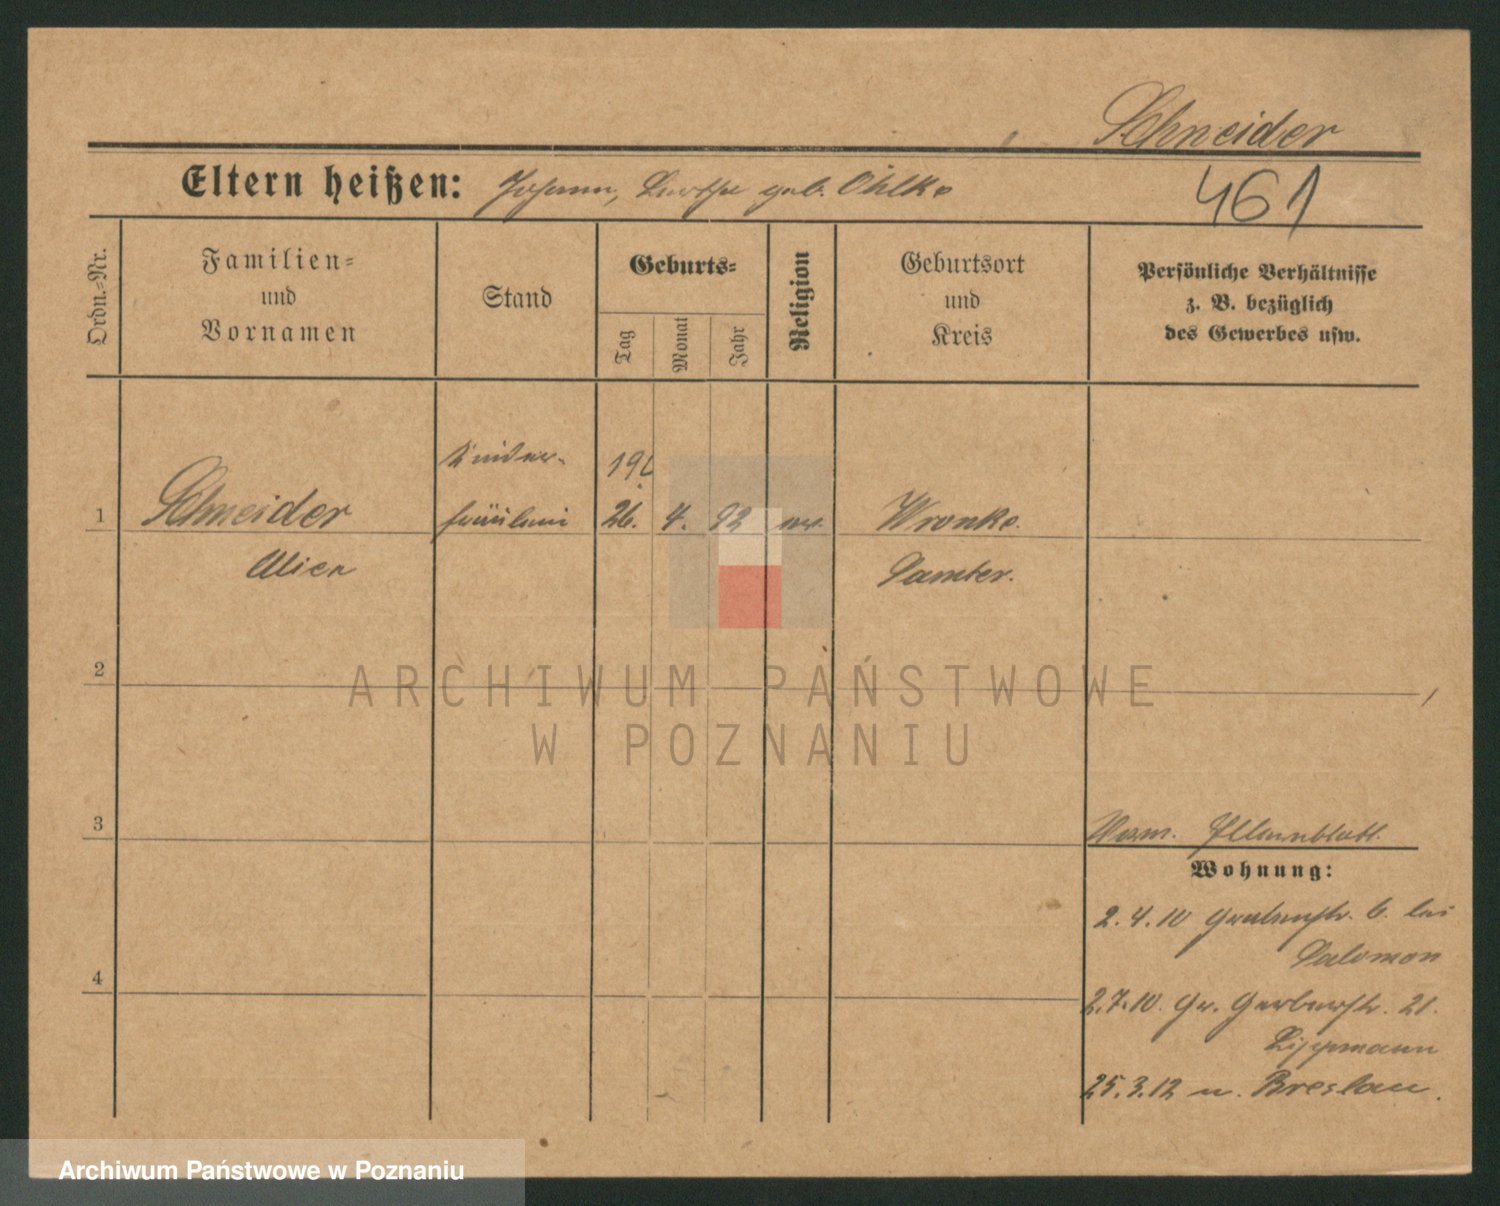 Schneider
Eltern heißen: Johann, geb. Ohlke
461
Ordn.-Nr.
Familien-
und
Vornamen
Stand
Geburts-
Tag
Monat
Jahr
Religion
Geburtsort
und
Kreis
Persönliche Verhältnisse
z. B. bezüglich
des Gewerbes usw.
Kinder-
1 Schneider fräulein 26. 4. 92 Wronke.
Samter.
2
ARCHIWUM PAŃSTWOWE
W POZNANIU
3
Wohnung:
2.4.10 Grabenstr. 6. bei
Salomon
4
2.7.10 Gr. Gerberstr. 21.
Lippmann
25.3.12 n. Breslau.
Archiwum Państwowe w Poznaniu